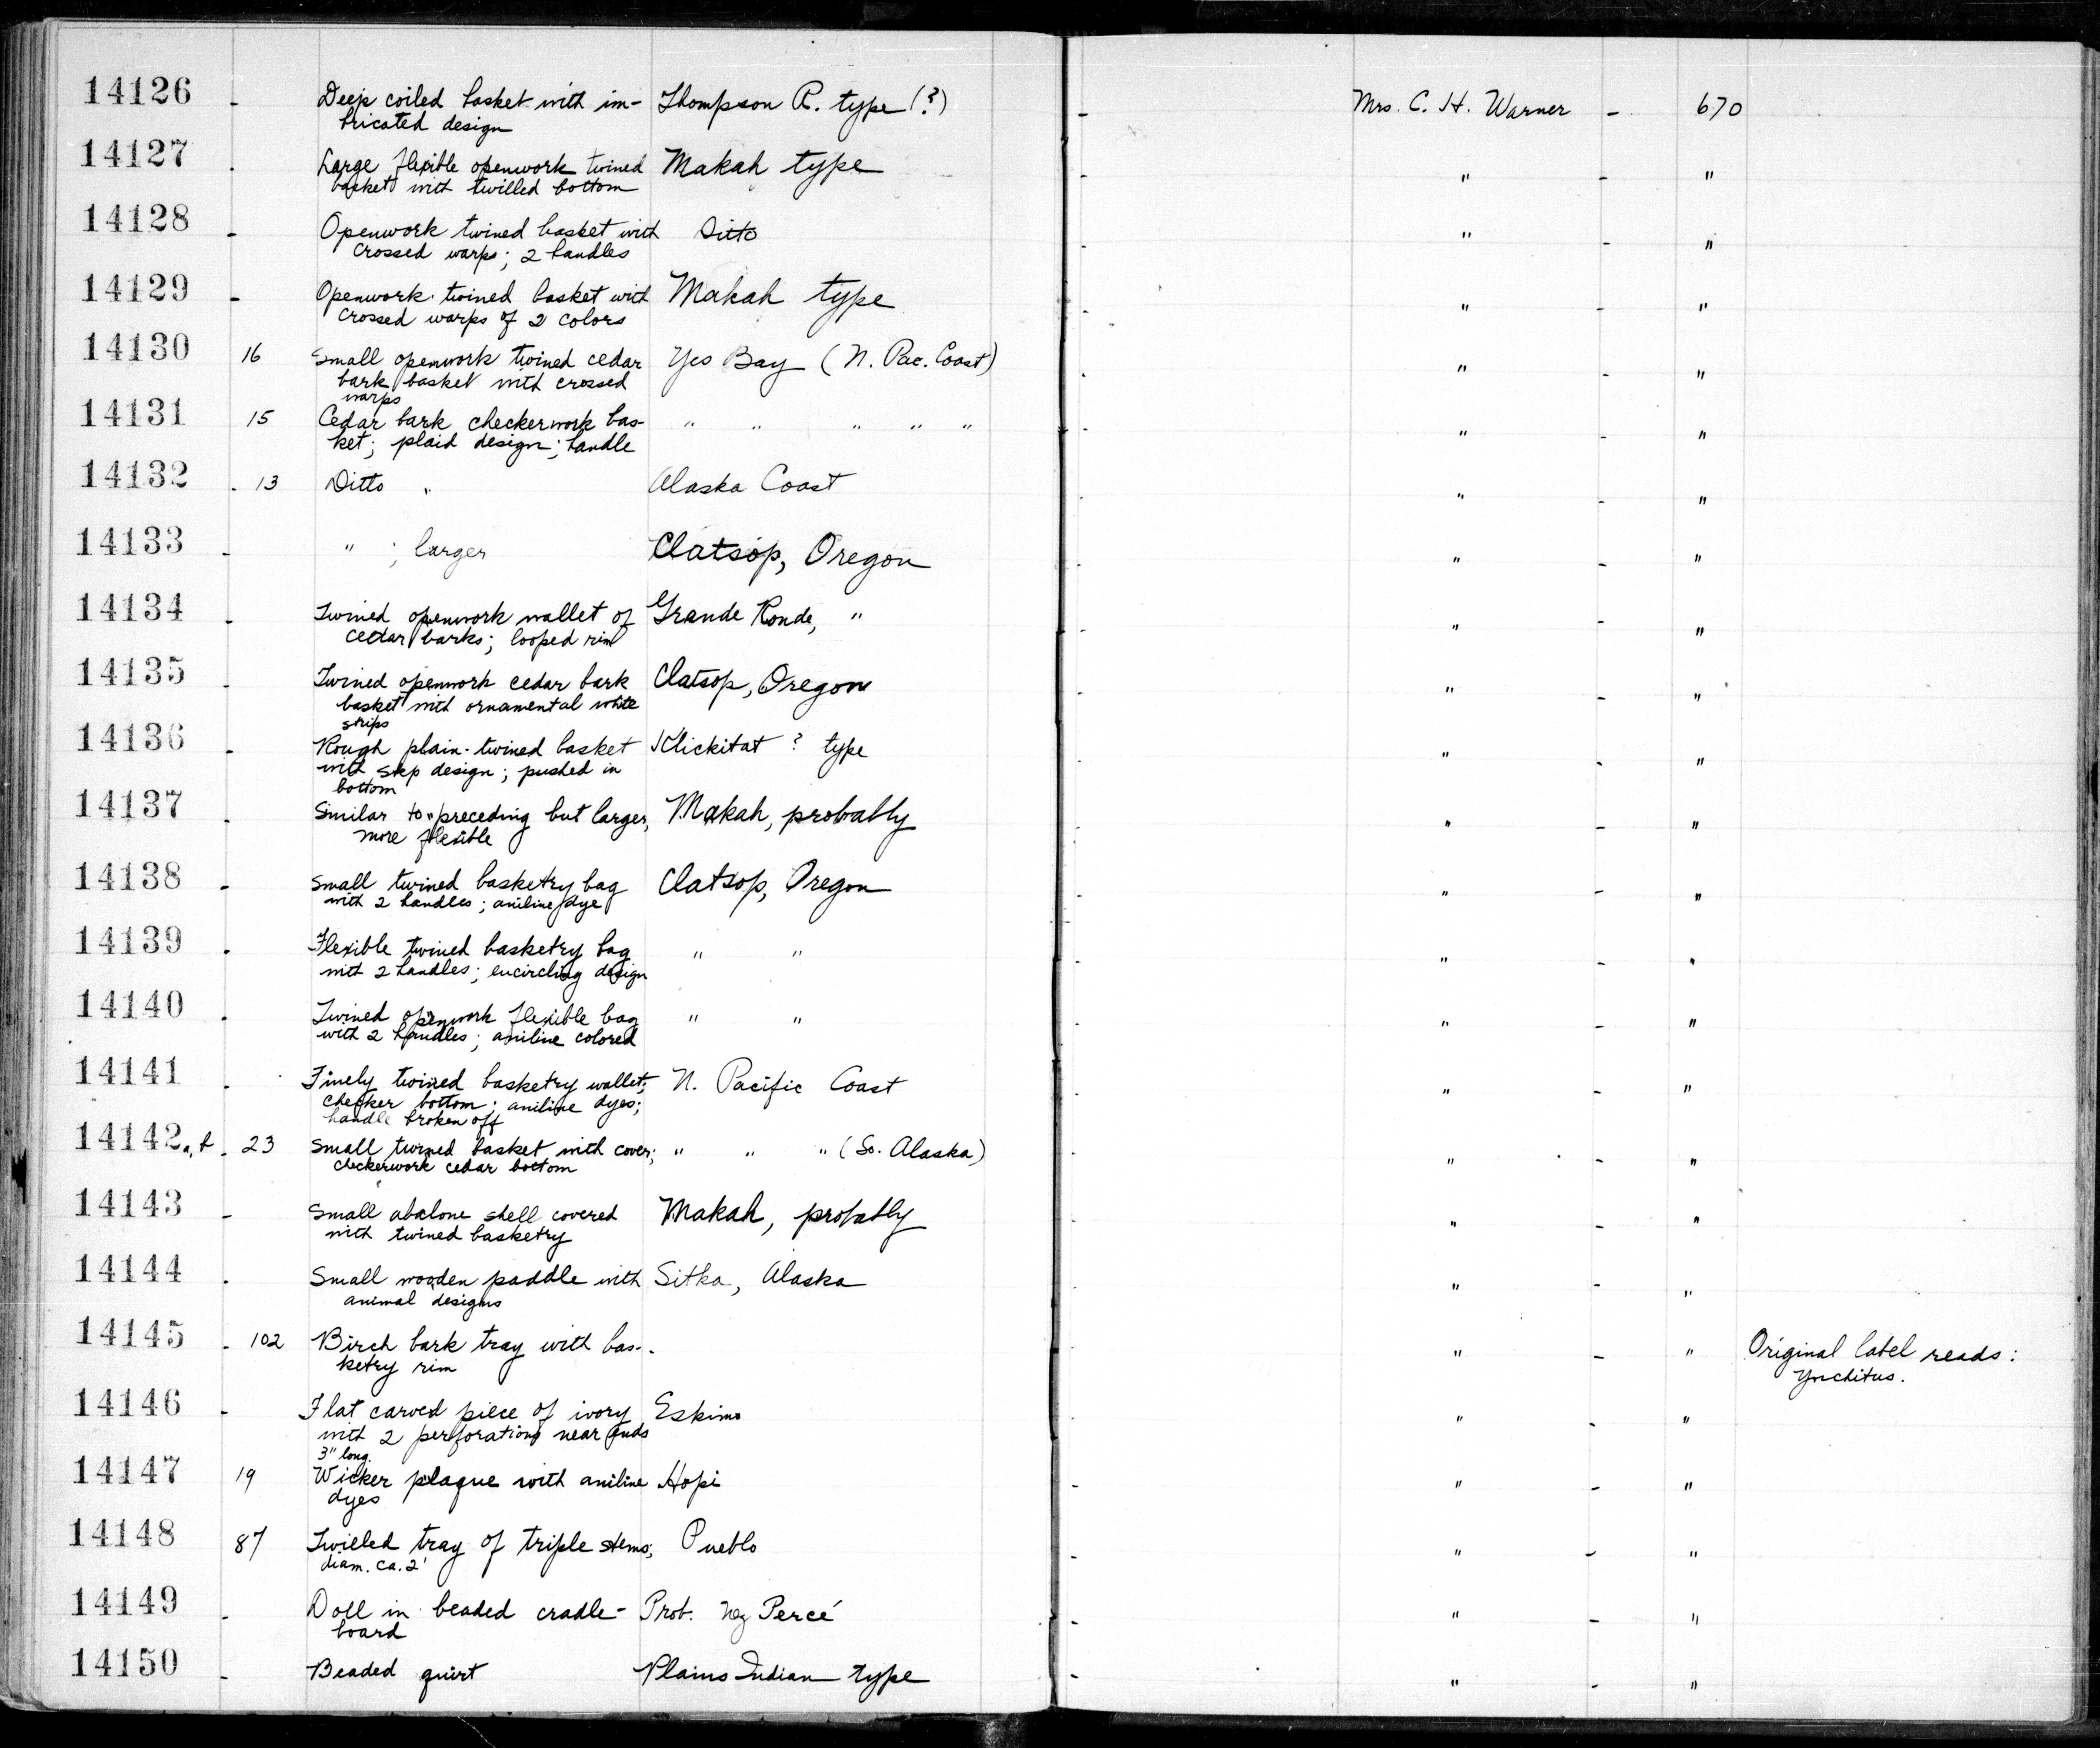 14126 - Deep coiled basket with im- Thompson R. type (?) - Mrs. C. H. Warner - 670
bricated design
14127 . Large flexible openwork twined Makah type - " - "
basket with twilled bottom
14128 - Openwork twined basket with Ditto - " - "
crossed warps; 2 handles
14129 - Openwork twined basket with Makah type - " - "
crossed warps of 2 colors
14130 16 Small openwork twined cedar Yes Bay (N. Pac. Coast) - " - "
bark basket with crossed
warps
14131 15 Cedar bark checkerwork bas- " " " " " - " - "
ket; plaid design; handle
14132 - 13 Ditto " Alaska Coast - " - "
14133 - " ; larger Clatsop, Oregon - " - "
14134 - Twined openwork wallet of Grande Ronde, " - " - "
cedar barks; looped rim
14135 - Twined openwork cedar bark Clatsop, Oregon - " - "
basket with ornamental white
strips
14136 - Rough plain-twined basket Klickitat ? type - " - "
with step design; pushed in
bottom
14137 - Similar to preceding but larger, Makah, probably - " - "
more flexible
14138 - Small twined basketry bag Clatsop, Oregon - " - "
with 2 handles; aniline dye
14139 - Flexible twined basketry bag " " - " - "
with 2 handles; encircling design
14140 - Twined openwork flexible bag " " - " - "
with 2 handles; aniline colored
14141 - Finely twined basketry wallet; N. Pacific Coast - " - "
checker bottom; aniline dyes;
handle broken off
14142a,b - 23 Small twined basket with cover; " " " (So. Alaska) - " - "
checkerwork cedar bottom
14143 - Small abalone shell covered Makah, probably - " - "
with twined basketry
14144 - Small wooden paddle with Sitka, Alaska - " - "
animal designs
14145 - 102 Birch bark tray with bas- - " - " Original label reads:
ketry rim
14146 - Flat carved piece of ivory Eskimo - " - "
with 2 perforations near ends
3" long.
14147 19 Wicker plaque with aniline Hopi - " - "
dyes
14148 87 Twilled tray of triple stems; Pueblo - " - "
diam. ca. 2'
14149 - Doll in beaded cradle- Prob. Nez Percé - " - "
board
14150 - Beaded quirt Plains Indian type - " - "